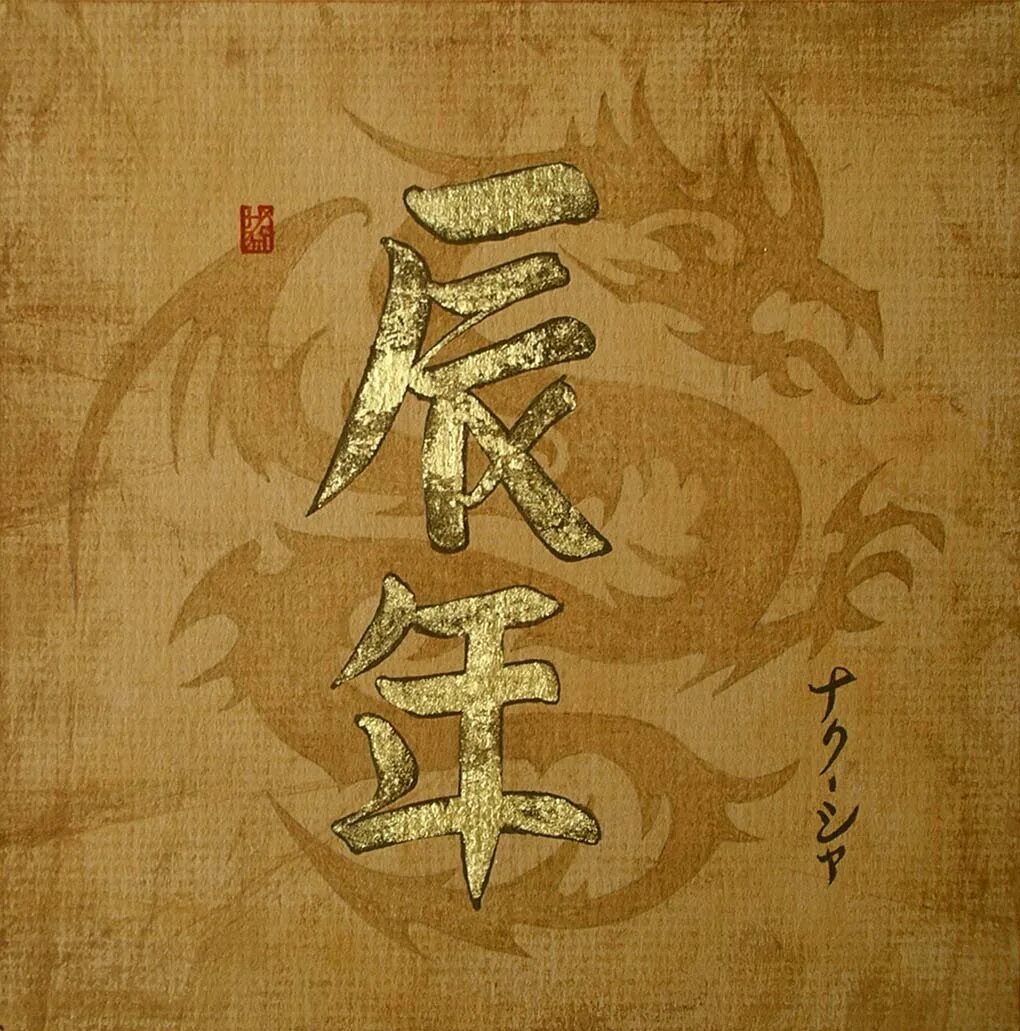 辰年
ナクーシャ